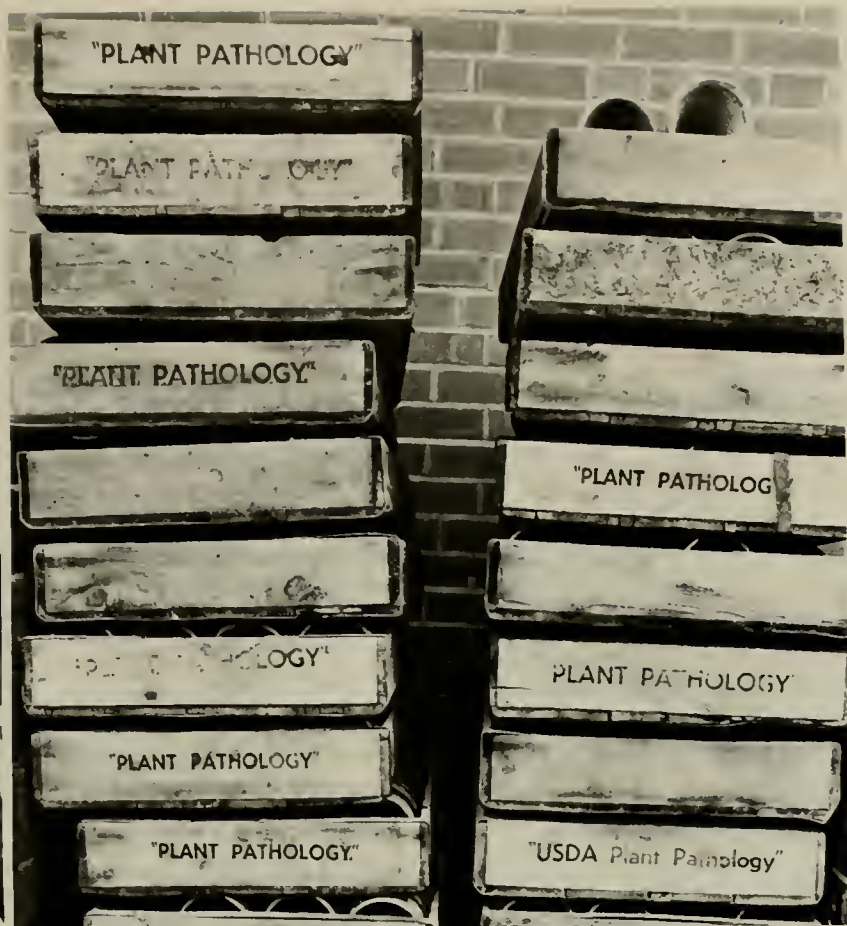 "PLANT PATHOLOGY"
"PLANT PATHOLOGY"
"PLANT PATHOLOGY"
"PLANT PATHOLOGY"
"PLANT PATHOLOGY."
"PLANT PATHOLOG
PLANT PATHOLOGY
"USDA Plant Pathology"